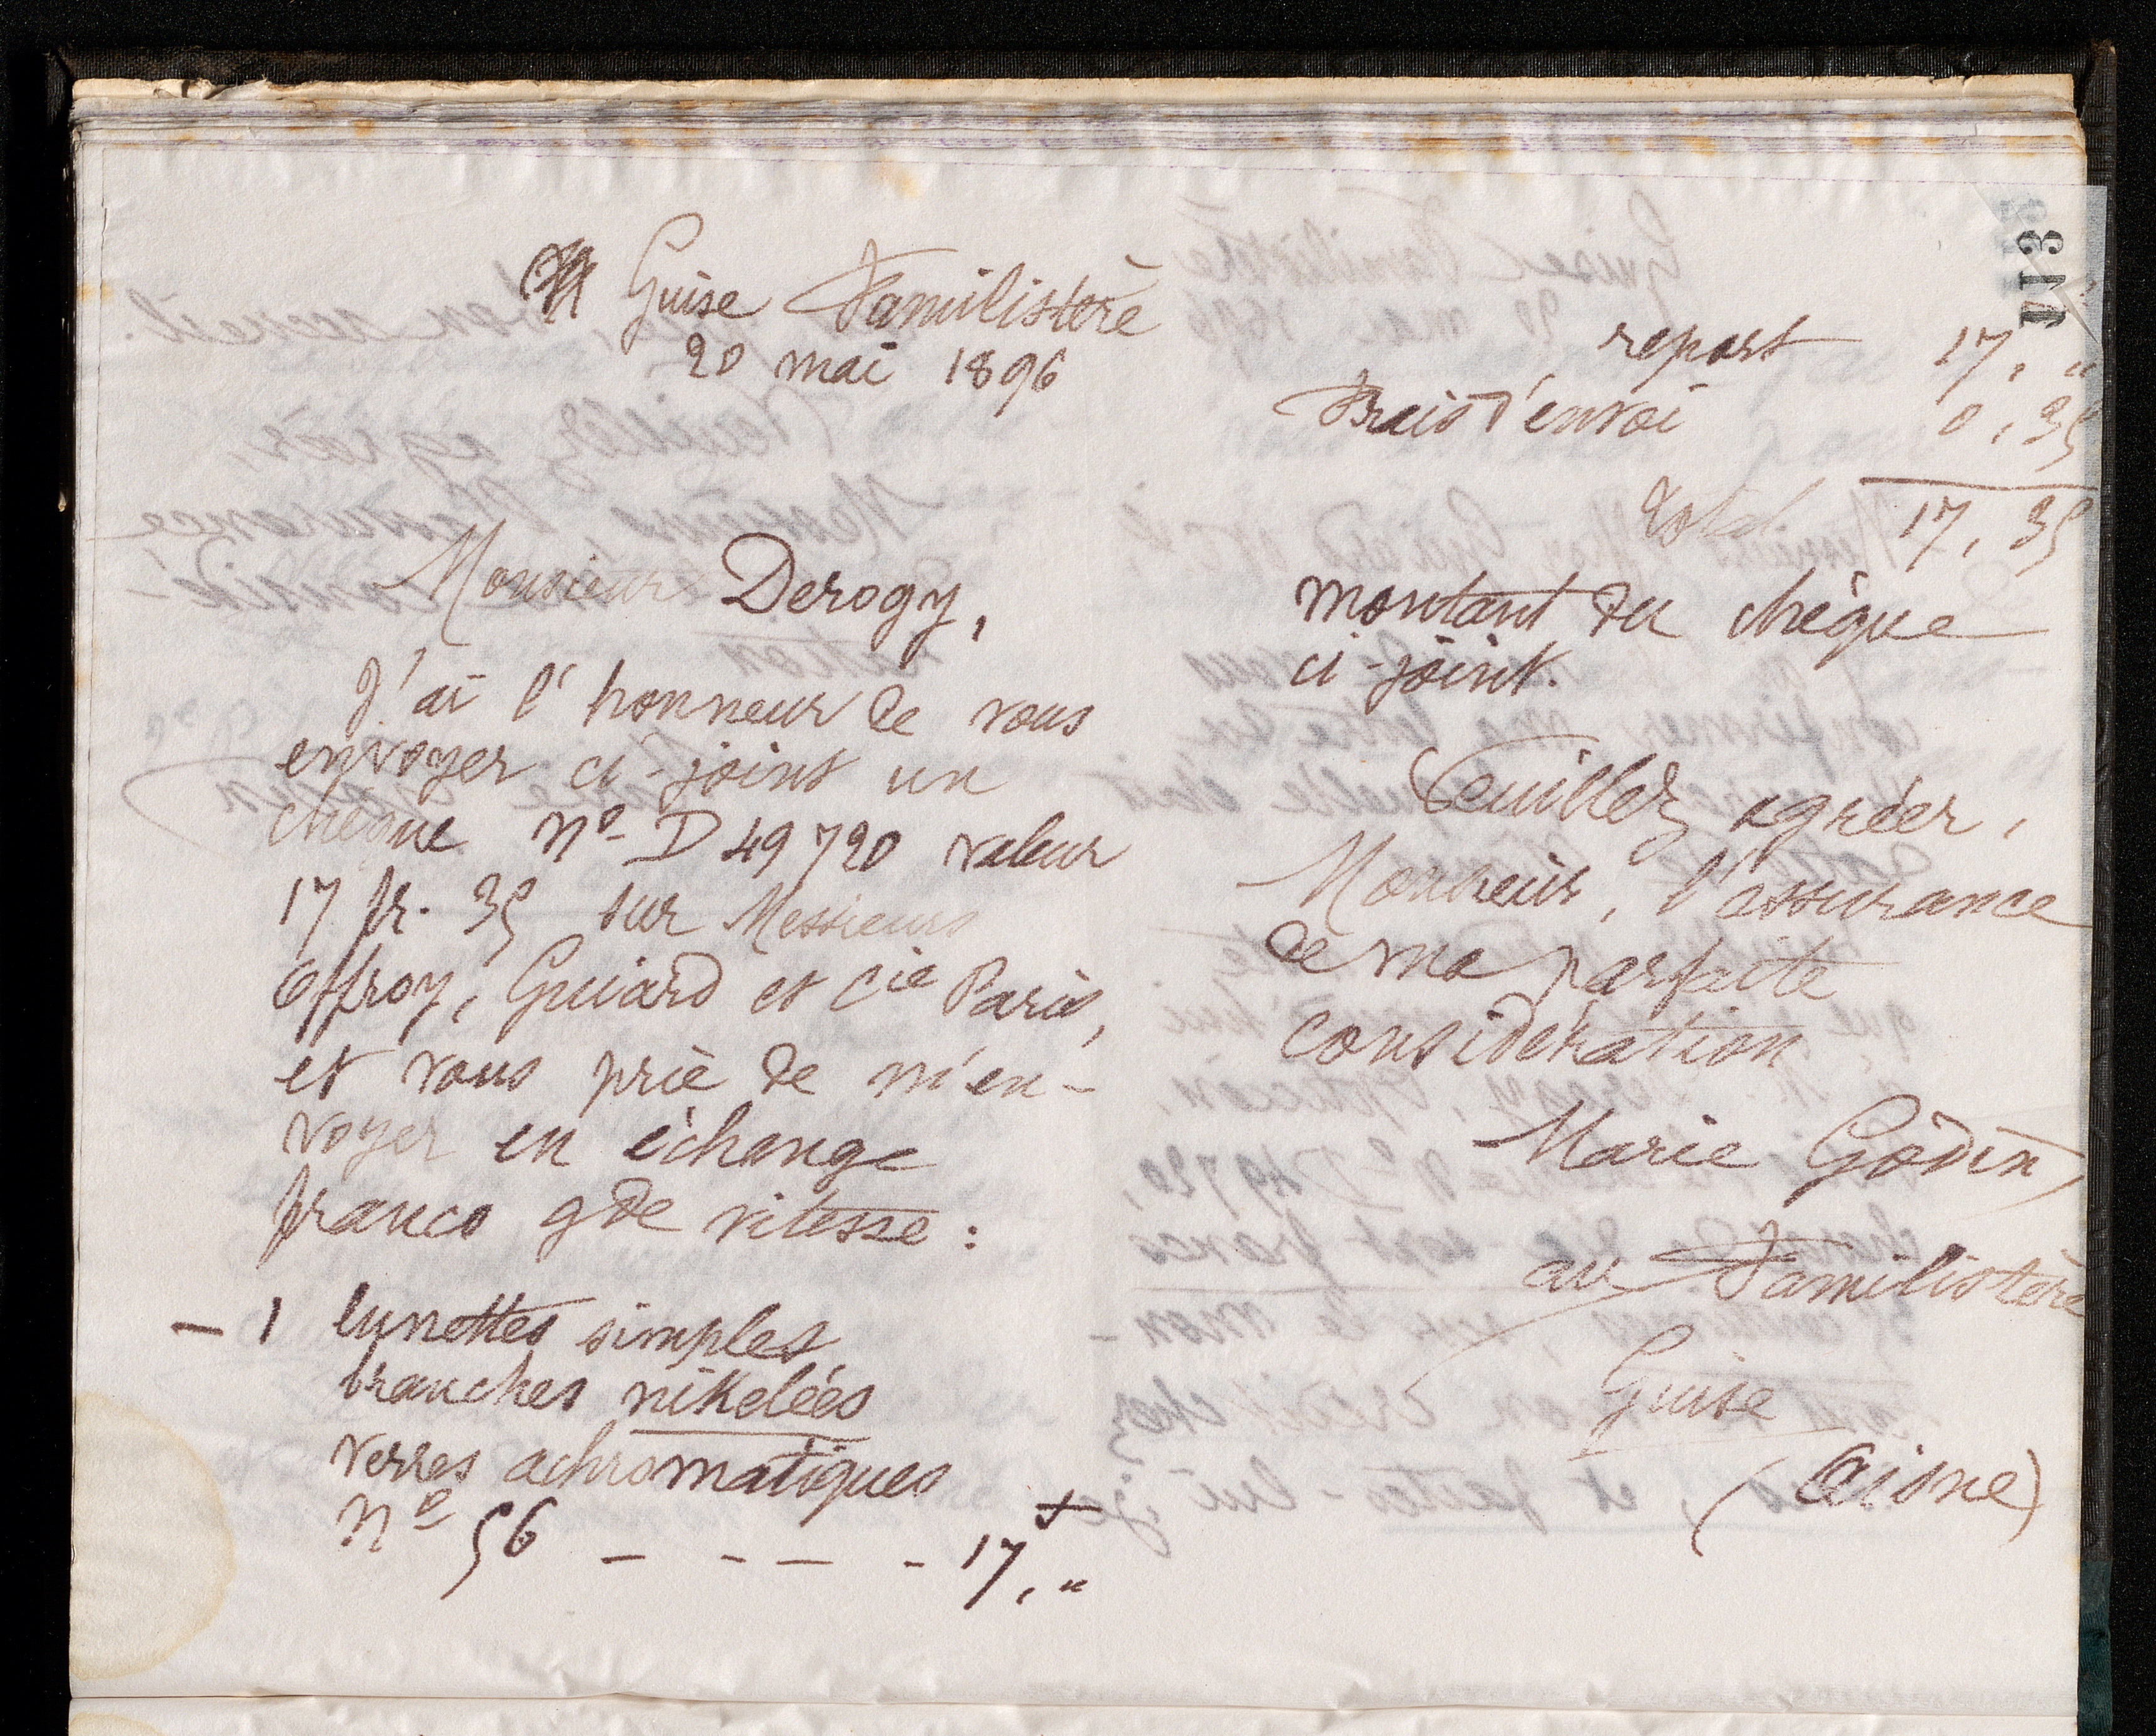 Guise Familistère
20 mai 1896
Monsieur Derogy,
J'ai l'honneur de vous
envoyer ci-joint un
chèque nº D 49720 valeur
17 fr. 35 sur Messieurs
Offroy, Guiard et Cie Paris,
et vous prie de m'en-
voyer en échange
franco gde vitesse :
— 1 lunettes simples
branches nikelées
verres achromatiques
nº 56 — - — - 17, "
113
report 17, "
Frais d'envoi 0,35
total 17,35
montant du chèque
ci-joint.
Veuillez agréer,
Monsieur, l'assurance
de ma parfaite
considération
Marie Godin
au Familistère
Guise
(Aisne)